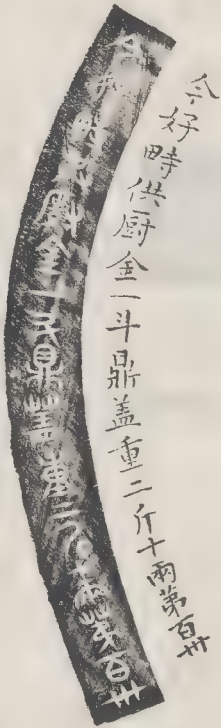 今好畤供厨金一斗鼎盖重二斤十兩第百卅
今好畤共厨金一斗鼎蓋重二斤十兩第百卅